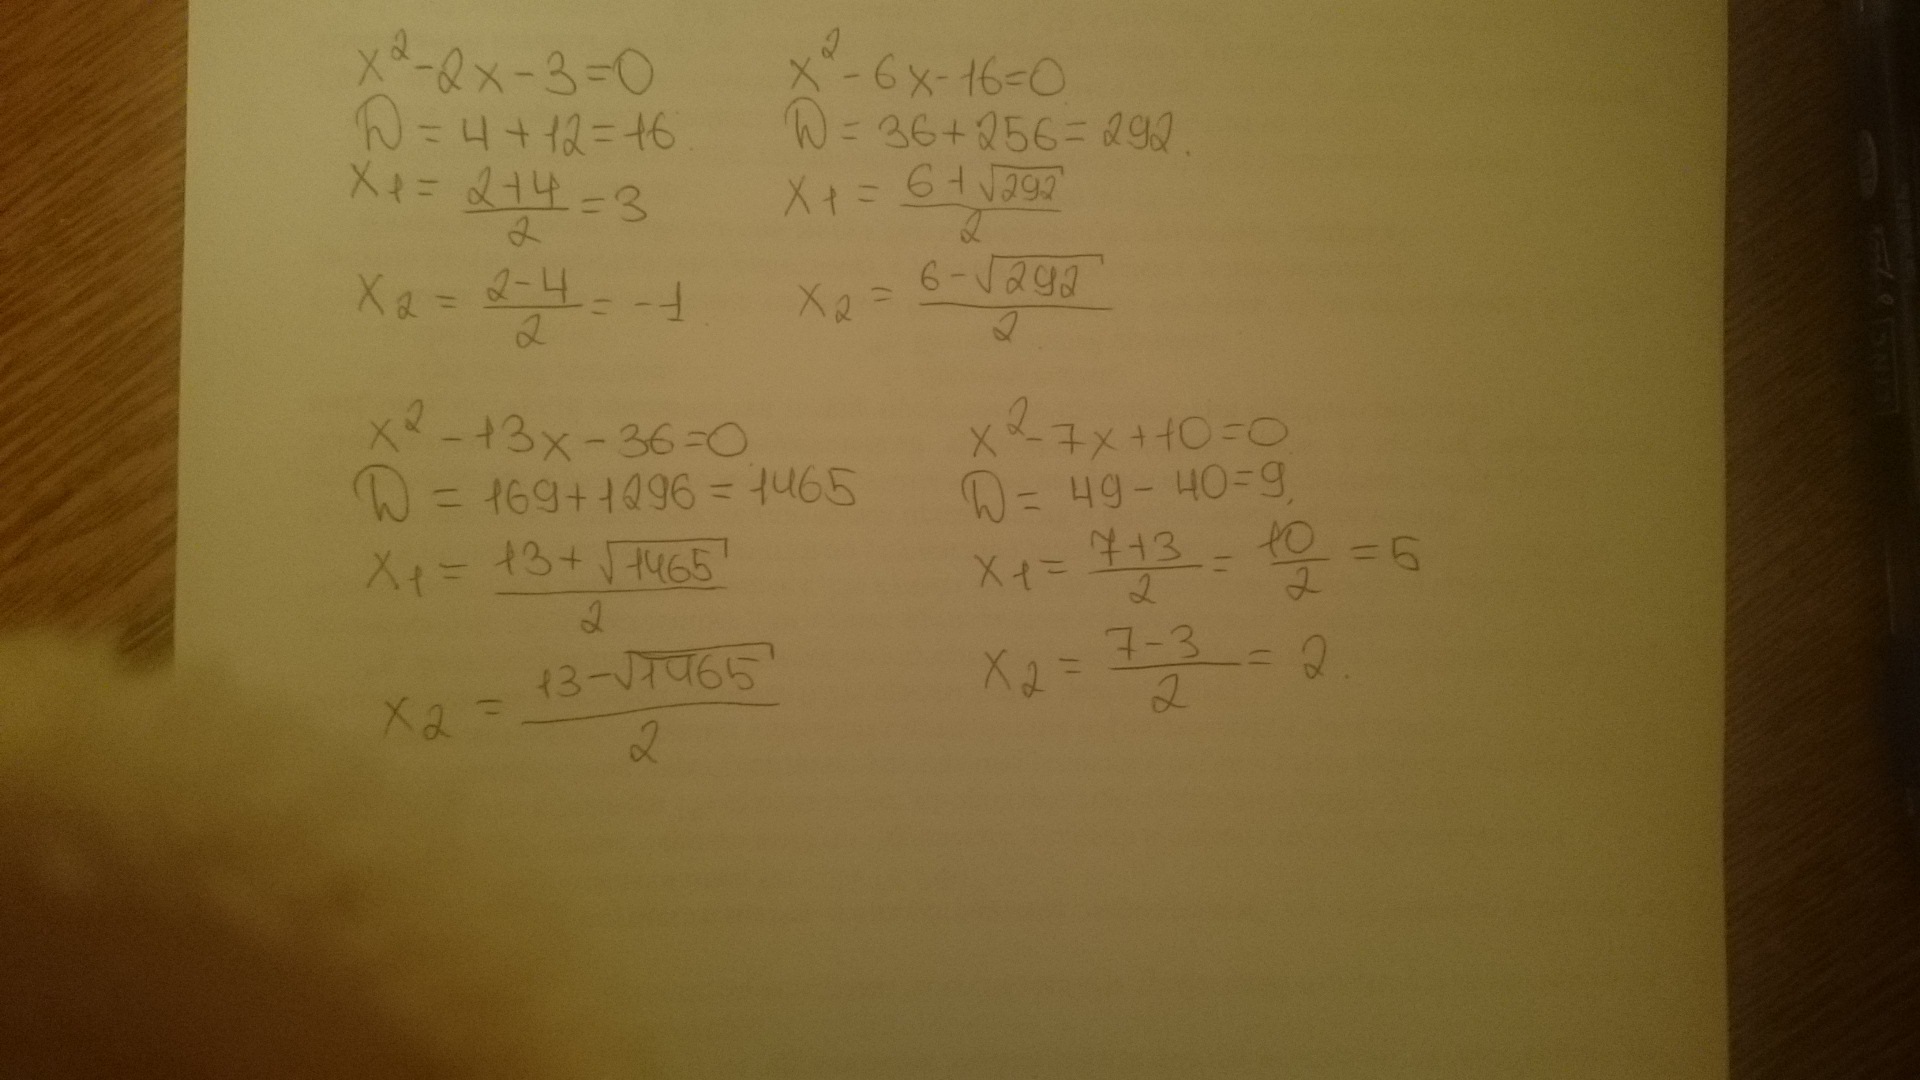 x²-2x-3=0
D=4+12=16.
x₁=(2+4)/2=3
x₂=(2-4)/2=-1.
x²-6x-16=0
D=36+256=292.
x₁=(6+√292)/2
x₂=(6-√292)/2
x²-13x-36=0
D=169+1296=1465
x₁=(13+√1465)/2
x₂=(13-√1465)/2
x²-7x+10=0
D=49-40=9.
x₁=(7+3)/2=10/2=5
x₂=(7-3)/2=2.